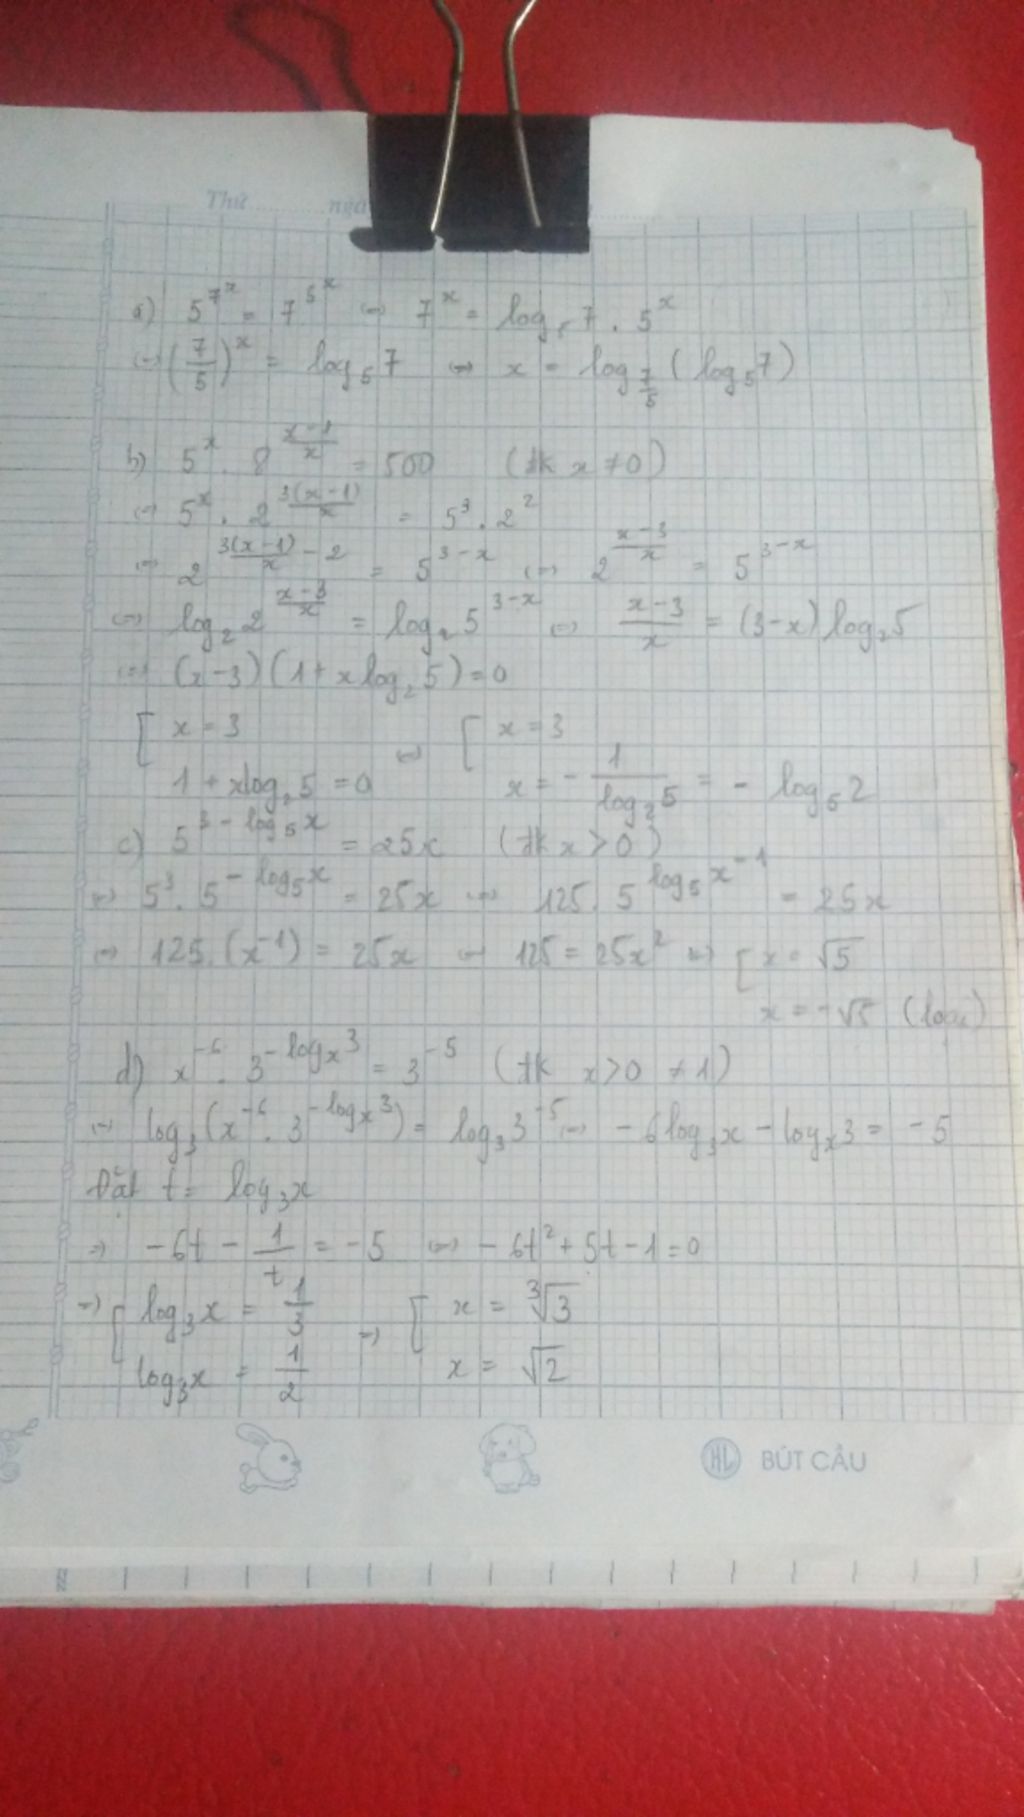 Thứ
a) 5^{7^x} = 7^{5^x} ⇔ 7^x = log_5 7 . 5^x
⇔ (7/5)^x = log_5 7 ⇔ x = log_{7/5} (log_5 7)
b) 5^x . 8^{(x-1)/x} = 500 (đk x ≠ 0)
⇔ 5^x . 2^{3(x-1)/x} = 5^3 . 2^2
⇔ 2^{3(x-1)/x - 2} = 5^{3-x} ⇔ 2^{(x-3)/x} = 5^{3-x}
⇔ log_2 2^{(x-3)/x} = log_2 5^{3-x} ⇔ (x-3)/x = (3-x) log_2 5
⇔ (x-3)(1+x log_2 5) = 0
[ x = 3 [ x = 3
1 + x log_2 5 = 0 ⇔ x = - 1/(log_2 5) = - log_5 2
c) 5^{3 - log_5 x} = 25x (đk x > 0)
⇔ 5^3 . 5^{- log_5 x} = 25x ⇔ 125 . 5^{log_5 x^{-1}} = 25x
⇔ 125.(x^{-1}) = 25x ⇔ 125 = 25x^2 ⇔ [ x = √5
x = -√5 (loại)
d) x^{-6} . 3^{-log_x 3} = 3^{-5} (đk x>0 ≠ 1)
⇔ log_3 (x^{-6} . 3^{-log_x 3}) = log_3 3^{-5} ⇔ -6 log_3 x - log_x 3 = -5
Đặt t = log_3 x
⇒ -6t - 1/t = -5 ⇔ -6t^2 + 5t - 1 = 0
⇒ [ log_3 x = 1/3 ⇒ [ x = ∛3
log_3 x = 1/2 x = √2
HL BÚT CẦU